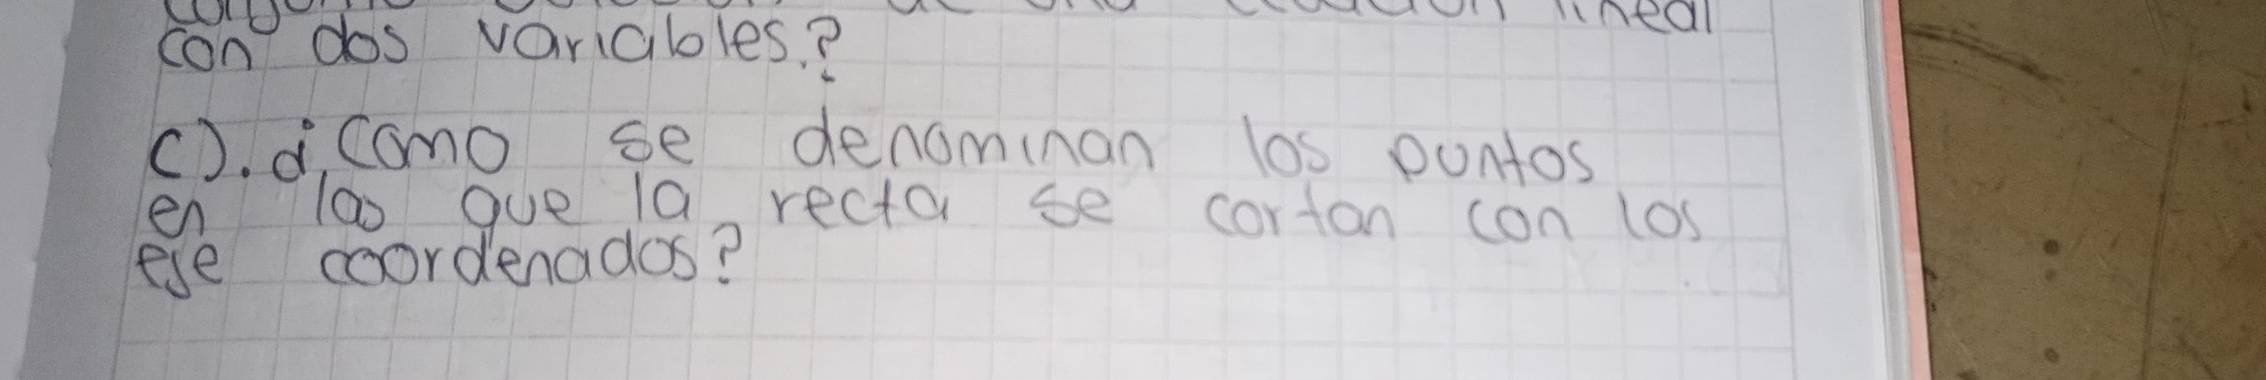 lineal
con dos variables.?
c). ¿como se denominan los puntos
en las que la recta se cortan con los
eje coordenados?